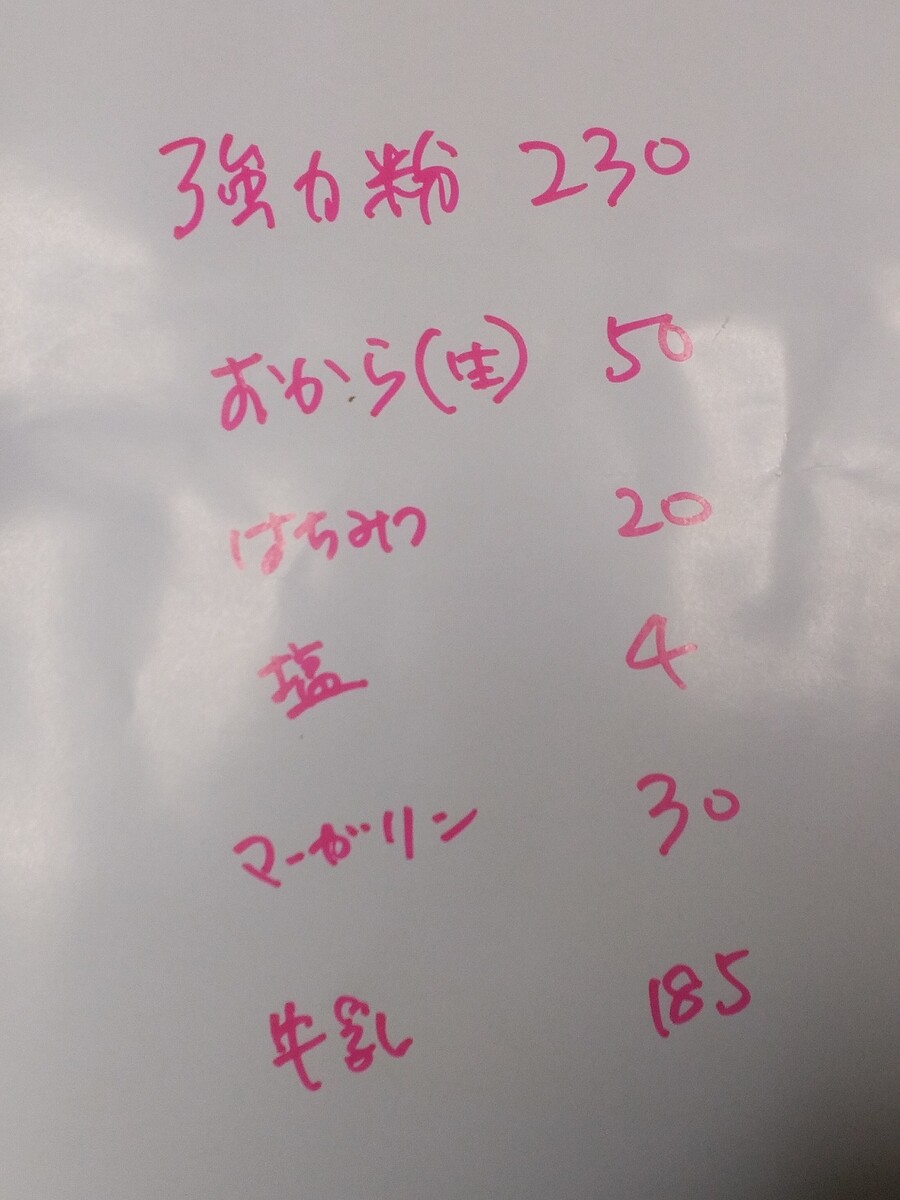 強力粉 230
おから(生) 50
はちみつ 20
塩 4
マーガリン 30
牛乳 185